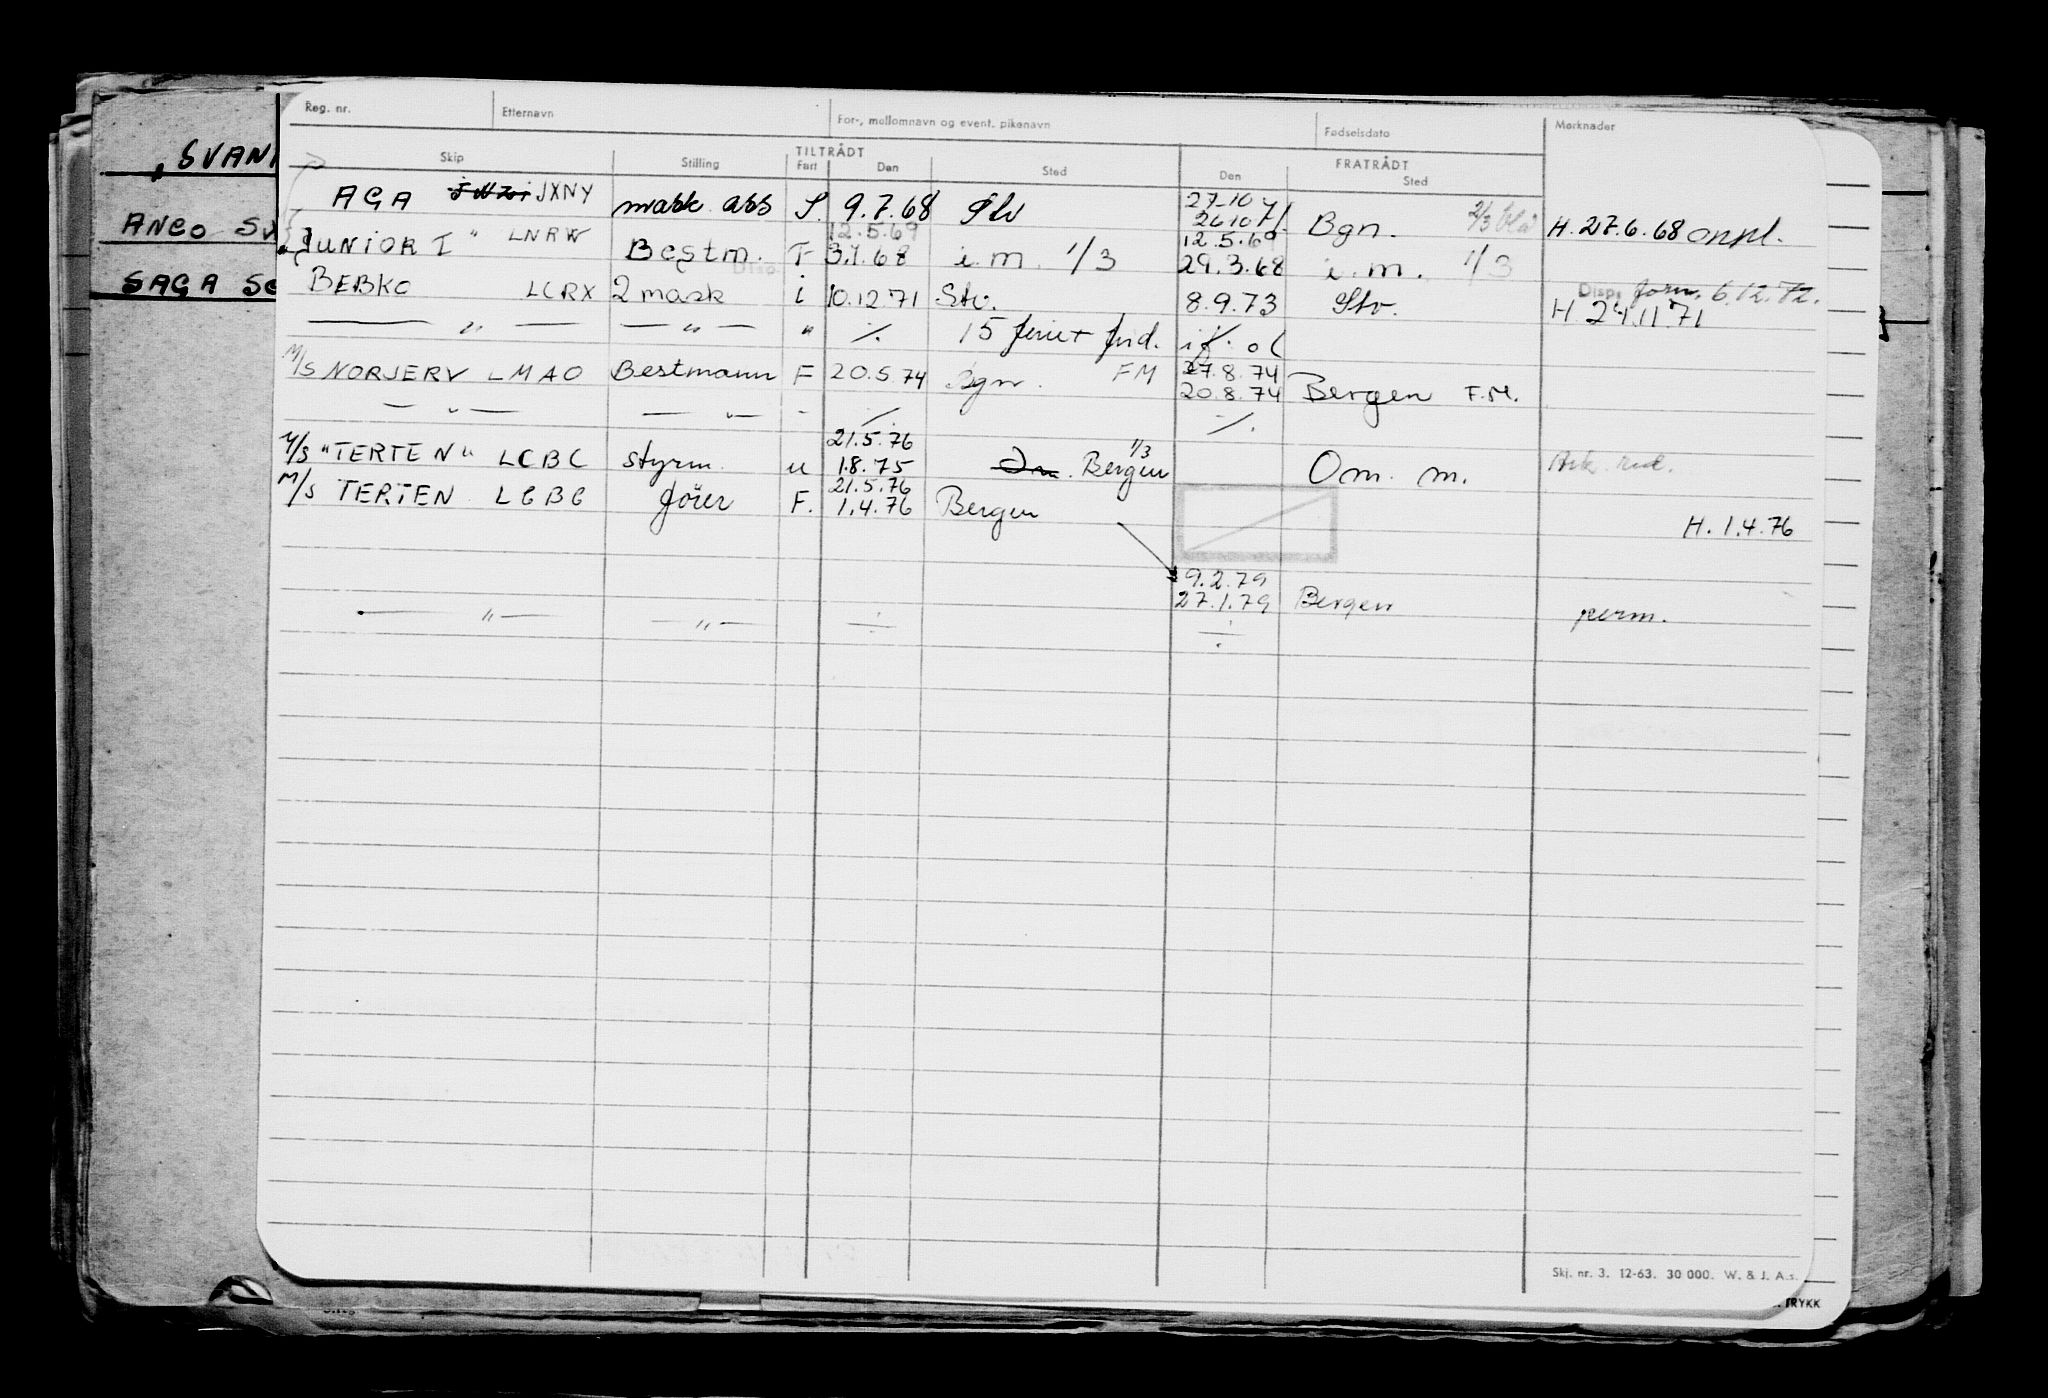 Reg. nr. Etternavn For-, mellomnavn og event. pikenavn Fødselsdato Merknader
TILTRÅDT FRATRÅDT
Skip Stilling Fart Den Sted Den Sted
"SVANI
ANCO SV
SAGA SC
27-10
AGA JXNY mask. ass S. 9.7.68 Stv 26.10.71 Bgn. 2/3 H. 27.6.68 oppl.
12.5.69 12.5.69
"JUNIOR I" LNRW Bestm. F 3.1.68 i.m. 1/3 29.3.68 i.m. 1/3
Disp.
BEBKO LCRX 2 mask i 10.12.71 Stv. 8.9.73 Stv. Disp. 6.12.72.
H 24.11.71
— " — — " — " ./. 15
M/S NORJERV LMAO Bestmann F 20.5.74 Bgn. FM 27.8.74
20.8.74 Bergen F.M.
— " — — " — - ./. ./.
21.5.76 1/3
M/S "TERTEN" LCBC styrm. u 1.8.75 Bergen Om. m.
21.5.76
M/S TERTEN LCBC F. 1.4.76 Bergen
H. 1.4.76
9.2.79
27.1.79 Bergen perm.
— " — — " — ÷ ÷
Skj. nr. 3. 12-63. 30 000. W. & J. A.s.
TRYKK